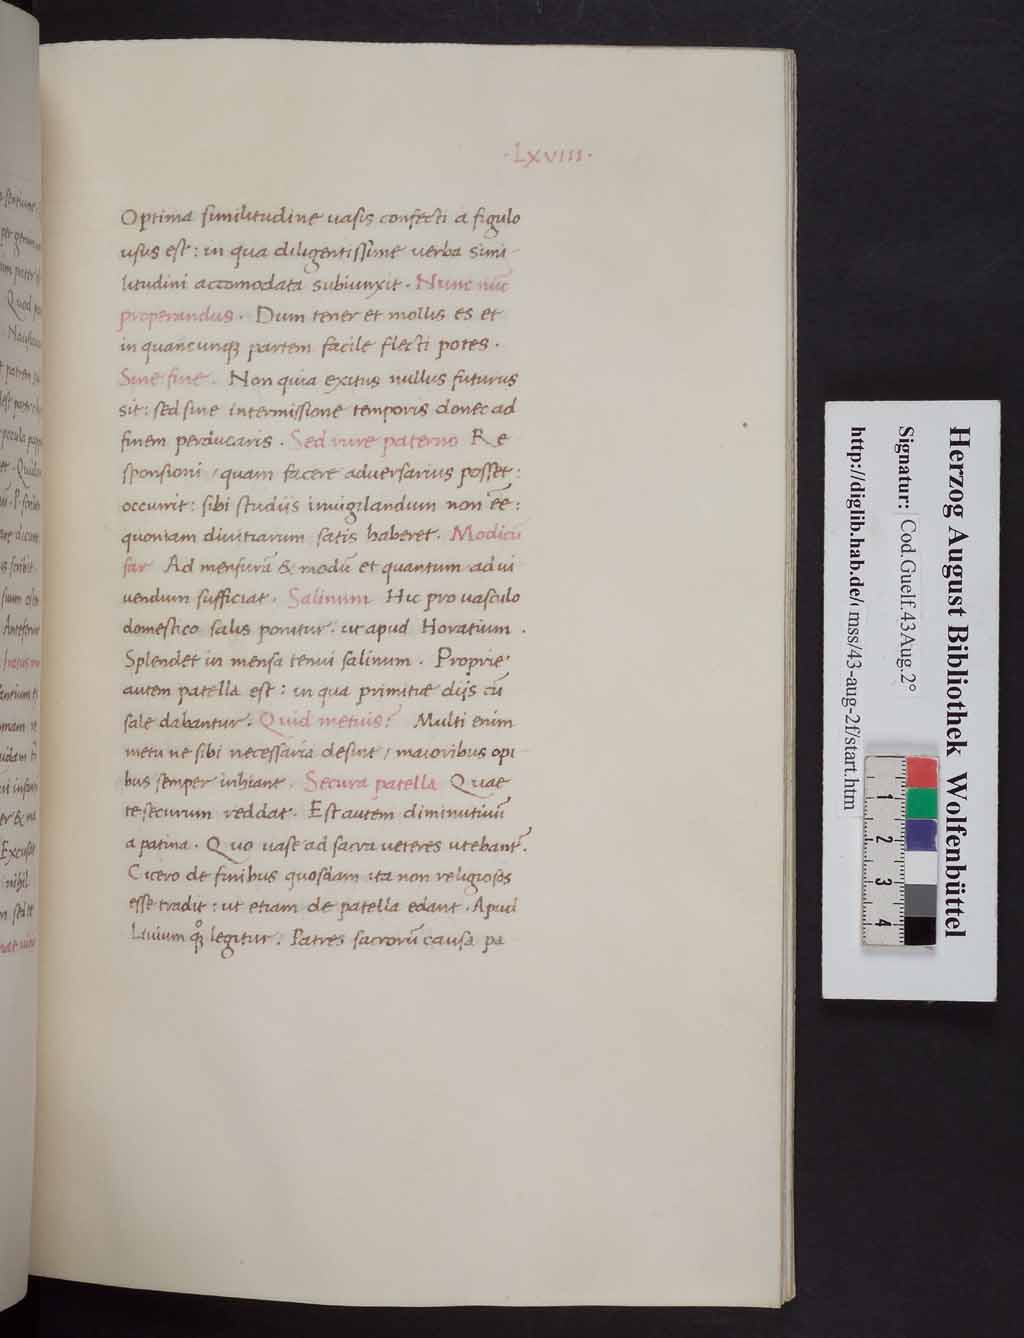 ·LXVIII·
Optima similitudine uasis confecti a figulo
usus est: in qua diligentissime uerba simi
litudini accomodata subiunxit. Nunc nūc
properandus. Dum tener et mollis es et
in quancunqꝫ partem facile flecti potes.
Sine fine. Non quia exitus nullus futurus
sit: sed sine intermissione temporis donec ad
finem perducaris. Sed rure paterno Re
sponsioni / quam facere aduersarius posset:
occurrit: sibi studijs inuigilandum non ēē:
quoniam diuitiarum satis haberet. Modicū
far Ad mensurā & modū et quantum ad ui
uendum sufficiat. Salinum Hic pro uasculo
domestico salis ponitur. ut apud Horatium.
Splendet in mensa tenui salinum. Proprie
autem patella est: in qua primitię dijs cū
sale dabantur. Quid metuis? Multi enim
metu ne sibi necessaria desint / maioribus opi
bus semper inhiant. Secura patella Quae
te securum reddat. Est autem diminutiuū
a patina. Quo uase ad sacra ueteres utebant.
Cicero de finibus quosdam ita non religiosos
esse tradit: ut etiam de patella edant. Apud
Liuium qꝫ legitur. Patres sacrorū causa pa
Herzog August Bibliothek Wolfenbüttel
Signatur: Cod.Guelf.43 Aug.2°
http://diglib.hab.de/mss/43-aug-2f/start.htm
1 2 3 4